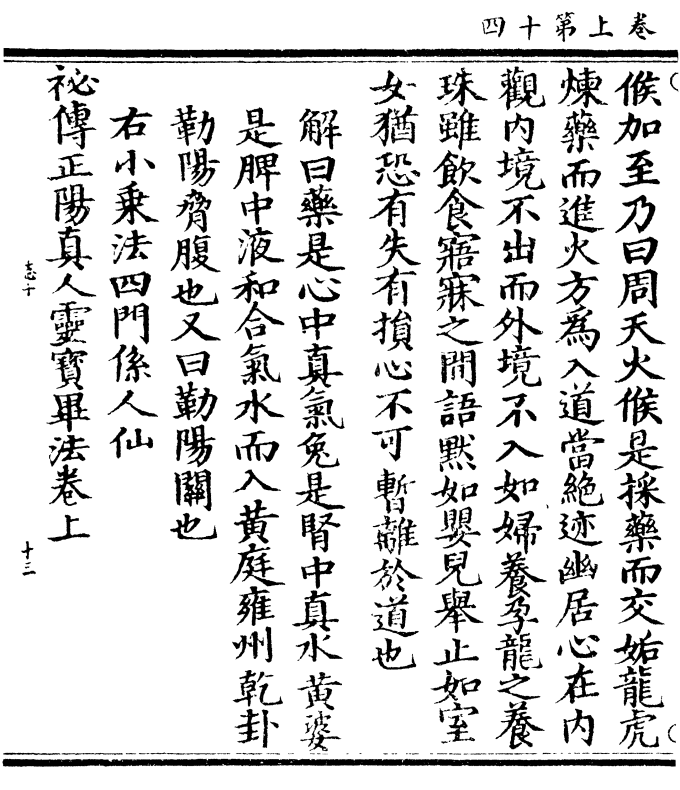 卷上第十四
候加至乃曰周天火候是採藥而交姤龍虎
煉藥而進火方爲入道當絶迹幽居心在内
觀内境不出而外境不入如婦養孕龍之養
珠雖飲食寤寐之間語默如嬰兒舉止如室
女猶恐有失有損心不可暫離於道也
解曰藥是心中真氣兔是腎中真水黄婆
是脾中液和合氣水而入黄庭雍州乾卦
勒陽臍腹也又曰勒陽關也
右小乗法四門係人仙
祕傳正陽真人靈寶畢法卷上
志十
十三